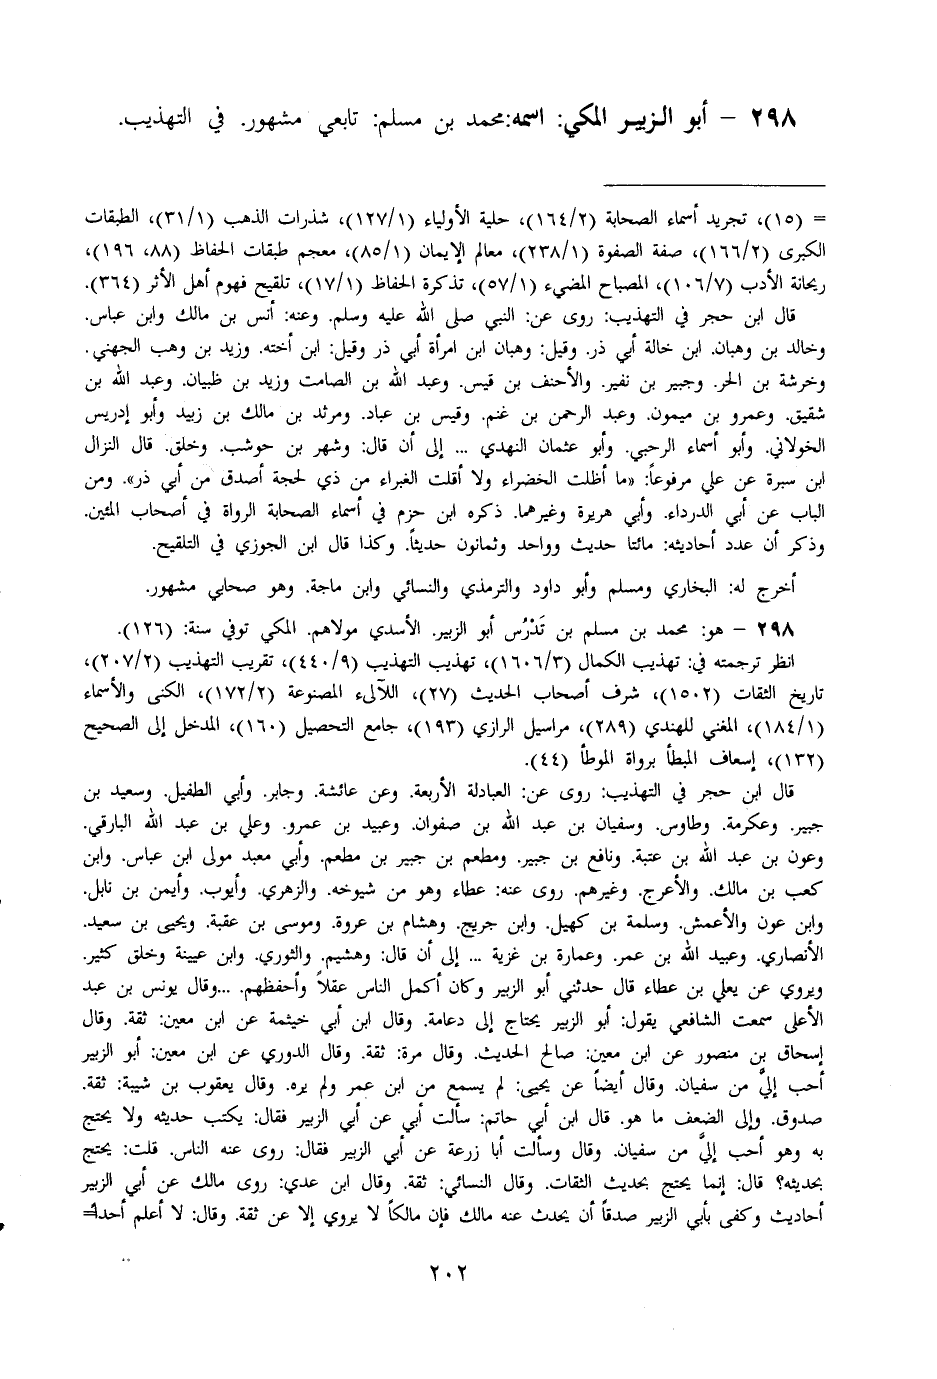 ٢٩٨ - أبو الزبير المكي: اسمه:محمد بن مسلم: تابعي مشهور. في التهذيب.
= (١٥)، تجريد أسماء الصحابة (١٦٤/٢)، حلية الأولياء (١٢٧/١)، شذرات الذهب (٣١/١)، الطبقات
الكبرى (١٦٦/٢)، صفة الصفوة (٢٣٨/١)، معالم الإيمان (٨٥/١)، معجم طبقات الحفاظ (٨٨، ١٩٦)،
ريحانة الأدب (١٠٦/٧)، المصباح المضيء (٥٧/١)، تذكرة الحفاظ (١٧/١)، تلقيح فهوم أهل الأثر (٣٦٤).
قال ابن حجر في التهذيب: روى عن: النبي صلى الله عليه وسلم. وعنه: أنس بن مالك وابن عباس.
وخالد بن وهبان. ابن خالة أبي ذر. وقيل: وهبان ابن امرأة أبي ذر وقيل: ابن أخته. وزيد بن وهب الجهني.
وخرشة بن الحر. وجبير بن نفير. والأحنف بن قيس. وعبد الله بن الصامت وزيد بن ظبيان. وعبد الله بن
شقيق. وعمرو بن ميمون. وعبد الرحمن بن غنم. وقيس بن عباد. ومرثد بن مالك بن زبيد وأبو إدريس
الخولاني. وأبو أسماء الرحبي. وأبو عثمان النهدي ... إلى أن قال: وشهر بن حوشب. وخلق. قال النزال
ابن سبرة عن علي مرفوعاً: «ما أظلت الخضراء ولا أقلت الغبراء من ذي لحجة أصدق من أبي ذر». ومن
الباب عن أبي الدرداء. وأبي هريرة وغيرهما. ذكره ابن حزم في أسماء الصحابة الرواة في أصحاب المئين.
وذكر أن عدد أحاديثه: مائتا حديث وواحد وثمانون حديثاً. وكذا قال ابن الجوزي في التلقيح.
أخرج له: البخاري ومسلم وأبو داود والترمذي والنسائي وابن ماجة. وهو صحابي مشهور.
٢٩٨ - هو: محمد بن مسلم بن تَدْرُس أبو الزبير. الأسدي مولاهم. المكي توفي سنة: (١٢٦).
انظر ترجمته في: تهذيب الكمال (١٦٠٦/٣)، تهذيب التهذيب (٤٤٠/٩)، تقريب التهذيب (٢٠٧/٢)،
تاريخ الثقات (١٥٠٢)، شرف أصحاب الحديث (٢٧)، اللآلىء المصنوعة (١٧٢/٢)، الكنى والأسماء
(١٨٤/١)، المغني للهندي (٢٨٩)، مراسيل الرازي (١٩٣)، جامع التحصيل (١٦٠)، المدخل إلى الصحيح
(١٣٢)، إسعاف المبطأ برواة الموطأ (٤٤).
قال ابن حجر في التهذيب: روى عن: العبادلة الأربعة. وعن عائشة. وجابر. وأبي الطفيل. وسعيد بن
جبير. وعكرمة. وطاوس. وسفيان بن عبد الله بن صفوان. وعبيد بن عمرو. وعلي بن عبد الله البارقي.
وعون بن عبد الله بن عتبة. ونافع بن جبير. ومطعم بن جبير بن مطعم. وأبي معبد مولى ابن عباس. وابن
كعب بن مالك. والأعرج. وغيرهم. روى عنه: عطاء وهو من شيوخه. والزهري. وأيوب. وأيمن بن نابل.
وابن عون والأعمش. وسلمة بن كهيل. وابن جريج. وهشام بن عروة. وموسى بن عقبة. ويحيى بن سعيد.
الأنصاري. وعبيد الله بن عمر. وعمارة بن غزية ... إلى أن قال: وهشيم. والثوري. وابن عيينة وخلق كثير.
ويروي عن يعلي بن عطاء قال حدثني أبو الزبير وكان أكمل الناس عقلاً وأحفظهم. ...وقال يونس بن عبد
الأعلى سمعت الشافعي يقول: أبو الزبير يحتاج إلى دعامة. وقال ابن أبي خيثمة عن ابن معين: ثقة. وقال
إسحاق بن منصور عن ابن معين: صالح الحديث. وقال مرة: ثقة. وقال الدوري عن ابن معين: أبو الزبير
أحب إليَّ من سفيان. وقال أيضاً عن يحيى: لم يسمع من ابن عمر ولم يره. وقال يعقوب بن شيبة: ثقة.
صدوق. وإلى الضعف ما هو. قال ابن أبي حاتم: سألت أبي عن أبي الزبير فقال: يكتب حديثه ولا يحتج
به وهو أحب إليَّ من سفيان. وقال وسألت أبا زرعة عن أبي الزبير فقال: روى عنه الناس. قلت: يحتج
بحديثه؟ قال: إنما يحتج بحديث الثقات. وقال النسائي: ثقة. وقال ابن عدي: روى مالك عن أبي الزبير
أحاديث وكفى بأبي الزبير صدقاً أن يحدث عنه مالك فإن مالكاً لا يروي إلا عن ثقة. وقال: لا أعلم أحداً=
٢٠٢